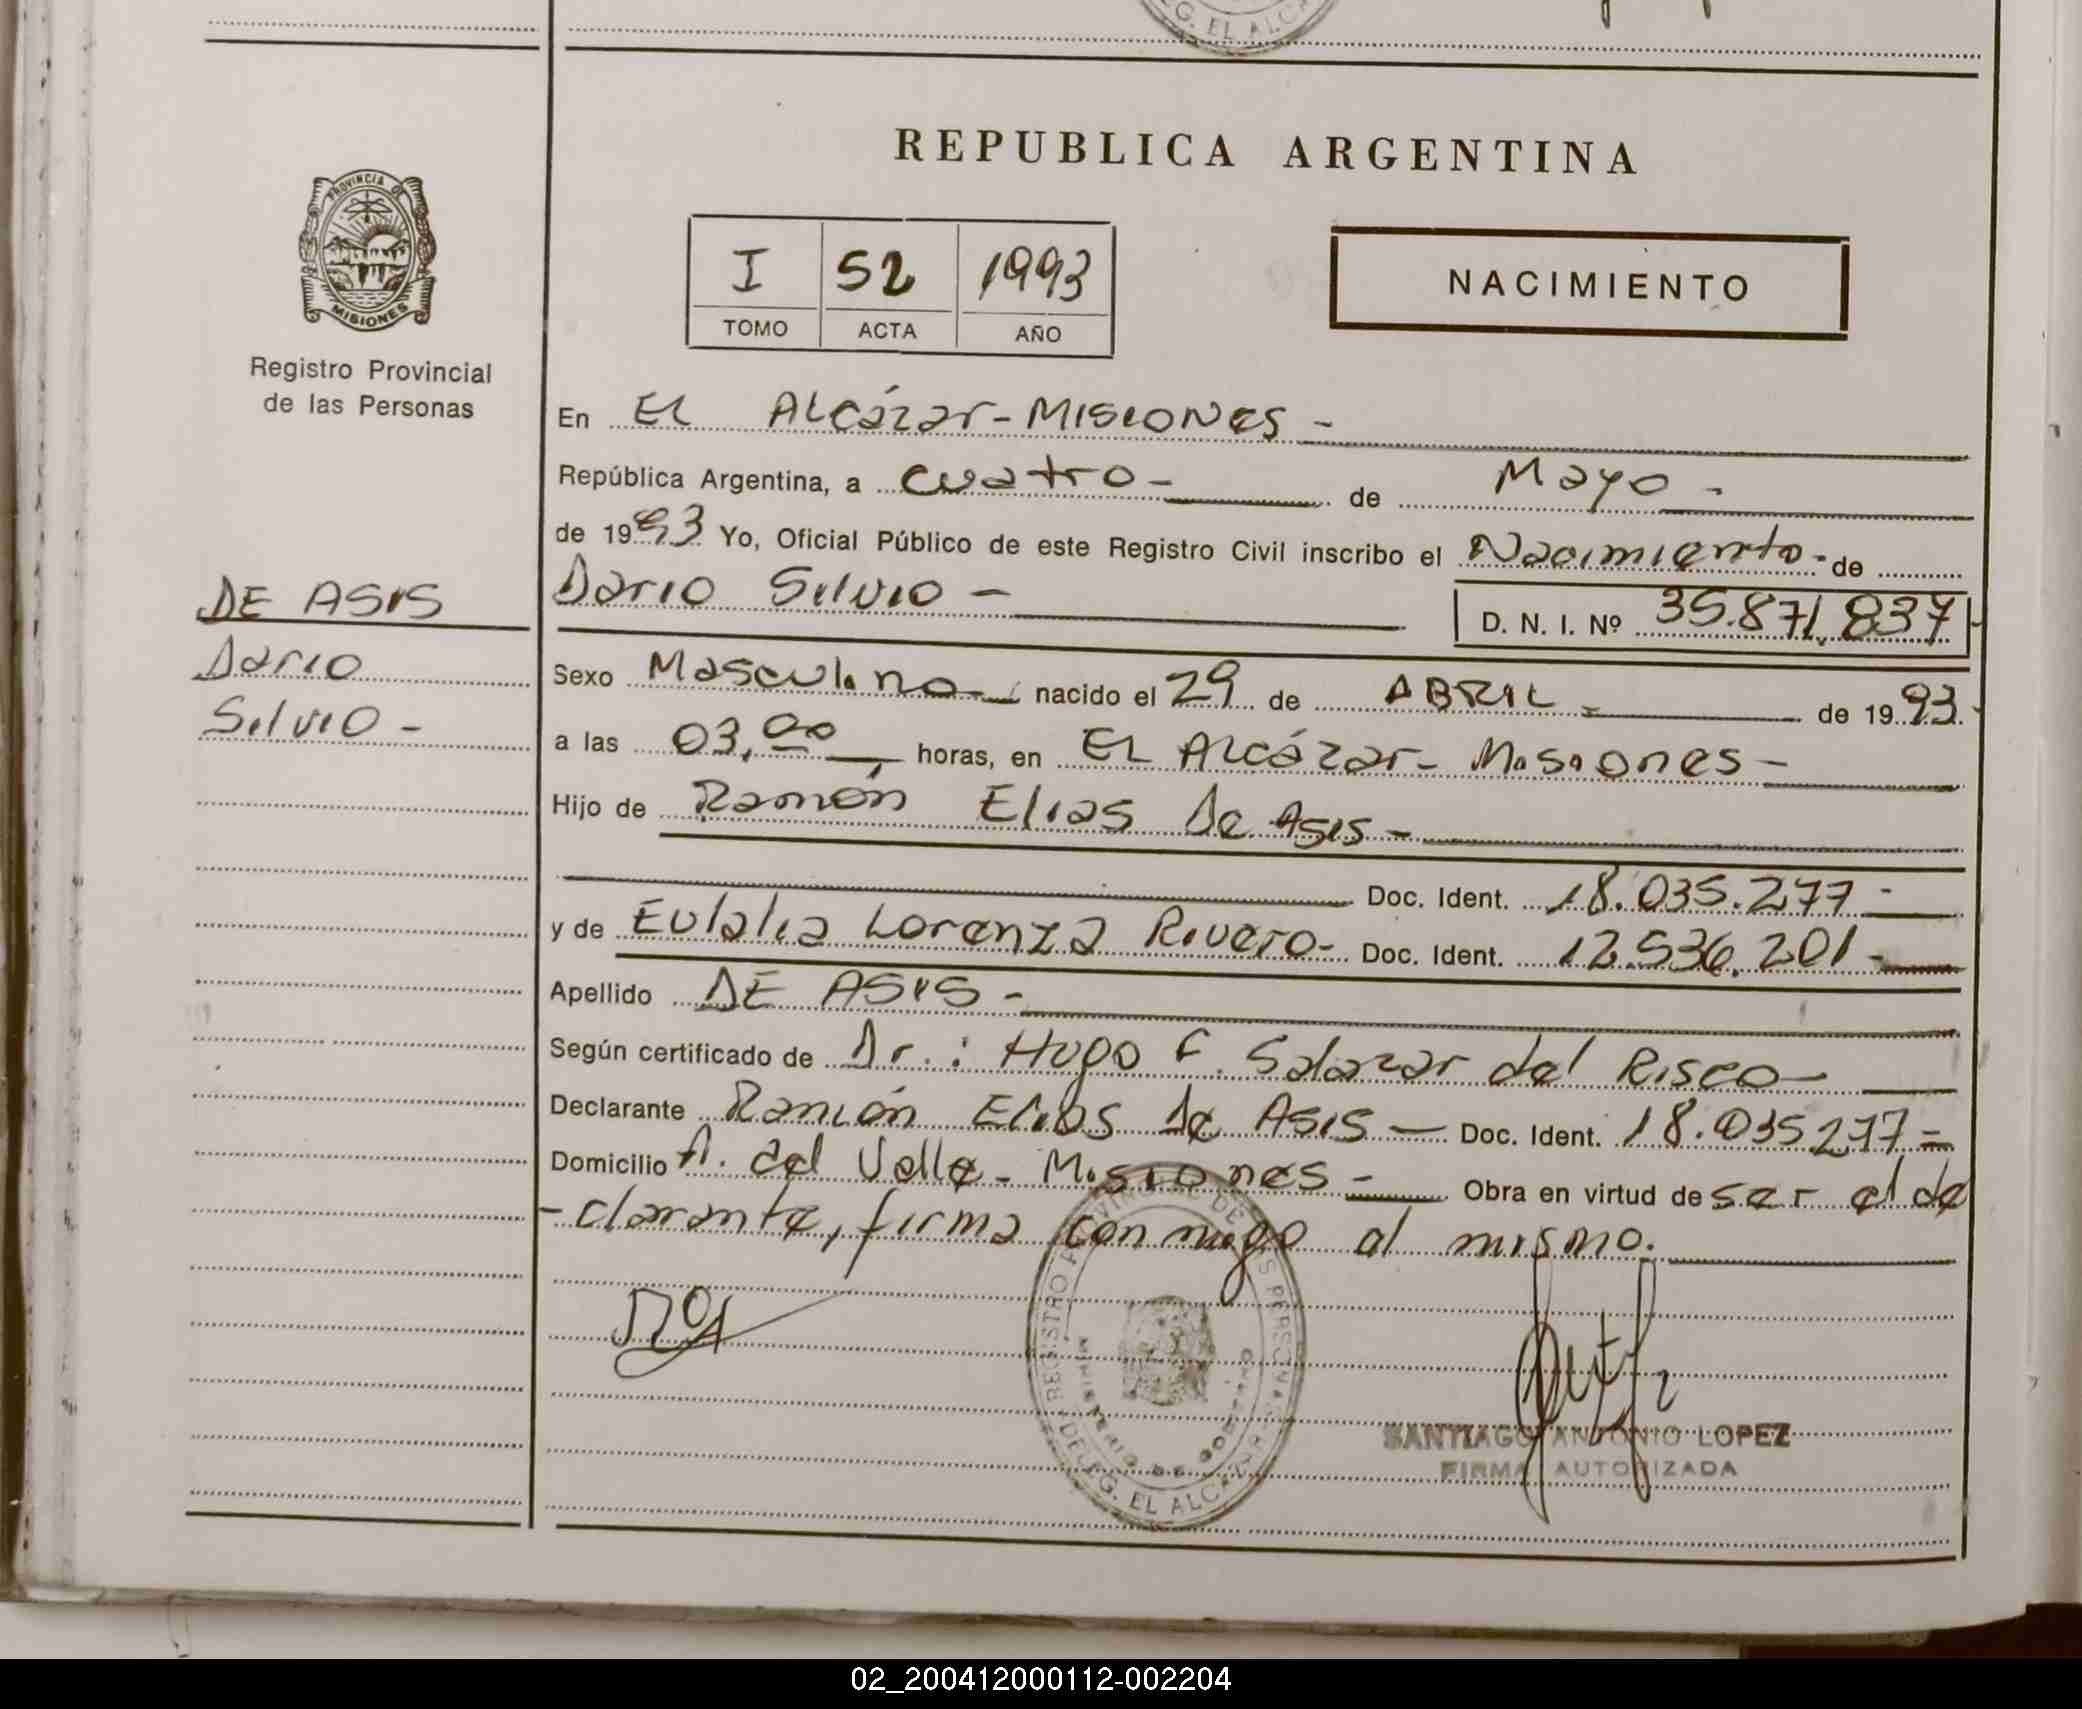 G. EL ALCA
REPUBLICA ARGENTINA
PROVINCIA DE
MISIONES
Registro Provincial
de las Personas
I 52 1993
TOMO ACTA AÑO
NACIMIENTO
En EL ALCázar-MISIONES-
República Argentina, a cuatro- de Mayo-
de 1993 Yo, Oficial Público de este Registro Civil inscribo el Nacimiento- de
Dario Silvio-
D. N. I. Nº 35.871.837
DE ASIS
Dario
Silvio-
Sexo Masculino- nacido el 29 de ABRIL- de 1993.
a las 03,00 horas, en EL Alcázar- Misiones-
Hijo de Ramón Elias De Asis-
Doc. Ident. 18.035.277-
y de Eulalia Lorenza Rivero- Doc. Ident. 12.536.201-
Apellido DE ASIS-
Según certificado de Dr.: Hugo F. Salazar del Risco-
Declarante Ramón Elias De Asis- Doc. Ident. 18.035277=
Domicilio A. del Valle- Misiones- Obra en virtud de ser el de
-clarante, firma conmigo al mismo.
REGISTRO PROVINCIAL DE LAS PERSONAS
MINISTERIO DE GOBIERNO
DELEG. EL ALCAZAR
SANTIAGO ANTONIO LOPEZ
FIRMA AUTORIZADA
02_200412000112-002204